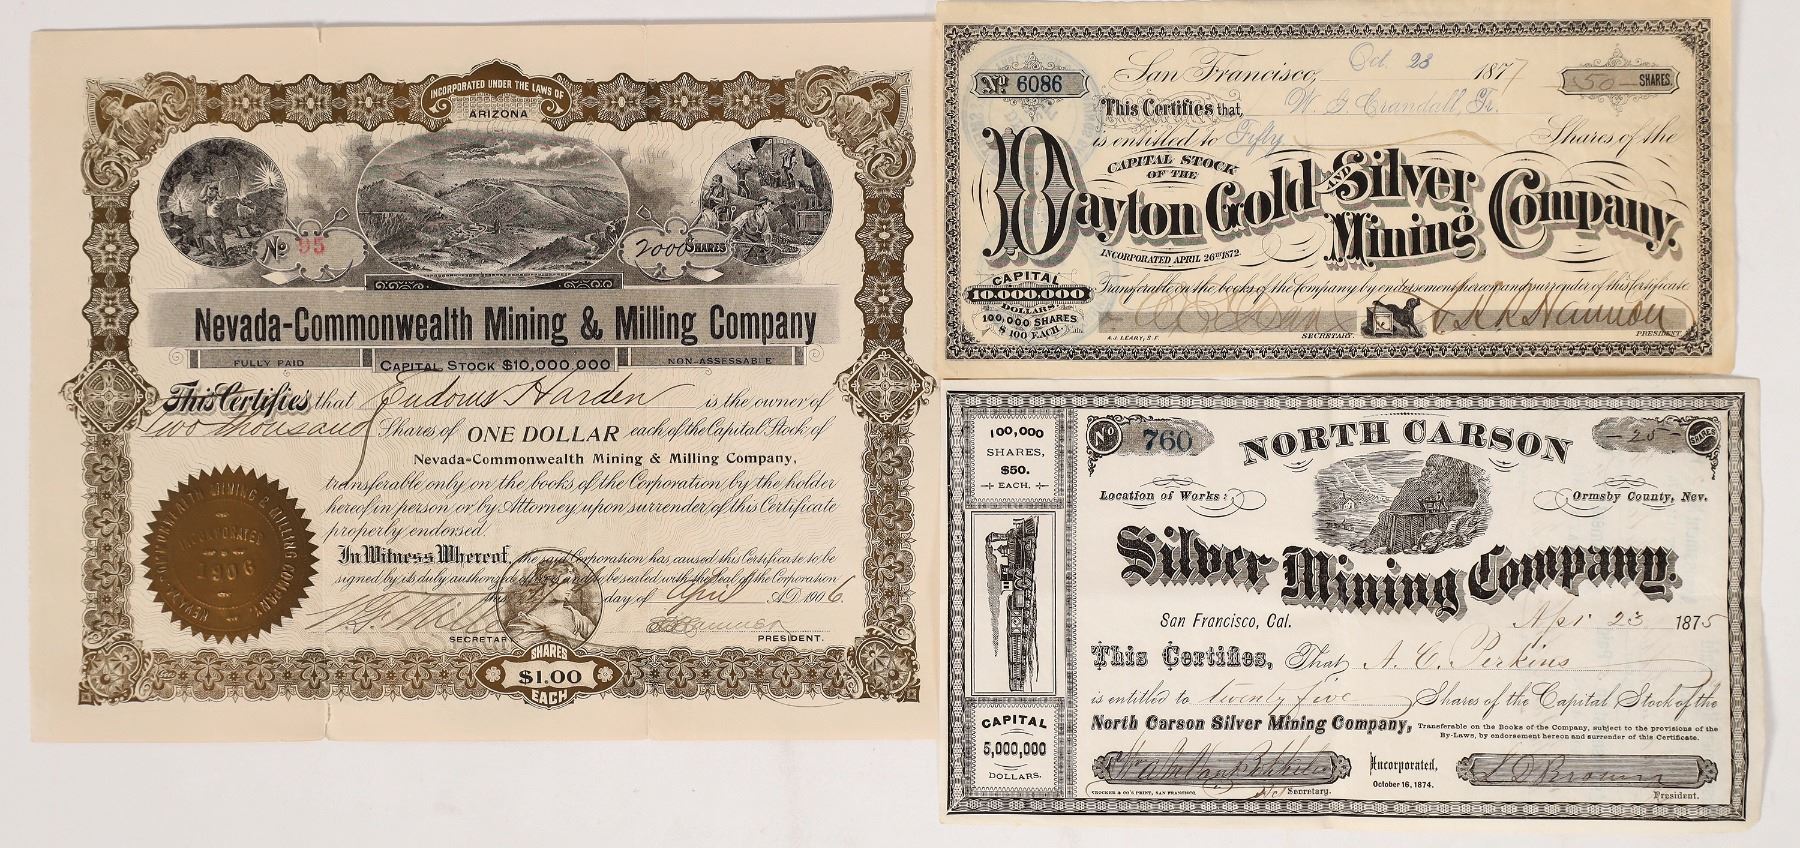 INCORPORATED UNDER THE LAWS OF
ARIZONA
No 95
2000 SHARES
Nevada-Commonwealth Mining & Milling Company
FULLY PAID
CAPITAL STOCK $10,000,000
NON-ASSESSABLE
This Certifies that Eudorus Harden is the owner of
Two thousand Shares of ONE DOLLAR each of the Capital Stock of
Nevada-Commonwealth Mining & Milling Company,
transferable only on the books of the Corporation by the holder
hereof in person or by Attorney upon surrender of this Certificate
properly endorsed.
In Witness Whereof, the said Corporation has caused this Certificate to be
signed by its duly authorized officers and to be sealed with the Seal of the Corporation
this day of April A.D. 1906.
SECRETARY
PRESIDENT.
SHARES
$1.00
EACH
NEVADA-COMMONWEALTH MINING & MILLING COMPANY
INCORPORATED
1906
San Francisco, Oct. 23 1877
No 6086
50 SHARES
This Certifies that, W. G. Crandall, Tr.
is entitled to Fifty Shares of the
CAPITAL STOCK
OF THE
Dayton Gold AND Silver Mining Company.
INCORPORATED APRIL 26TH 1872.
CAPITAL
10,000,000
DOLLARS
100,000 SHARES
$100 EACH.
Transferable on the books of the Company by endorsement hereon and surrender of this Certificate
A.J. LEARY, S.F.
SECRETARY.
PRESIDENT
100,000
SHARES,
$50.
EACH.
CAPITAL
5,000,000
DOLLARS.
No 760
NORTH CARSON
25 SHARES
Location of Works:
Ormsby County, Nev.
Silver Mining Company.
San Francisco, Cal. Apr 23 1875
This Certifies, That A. C. Perkins
is entitled to twenty five Shares of the Capital Stock of the
North Carson Silver Mining Company, Transferable on the Books of the Company, subject to the provisions of the
By-Laws, by endorsement hereon and surrender of this Certificate.
Incorporated,
October 16, 1874.
L D Brown
CROCKER & CO'S PRINT, SAN FRANCISCO.
Secretary.
President.